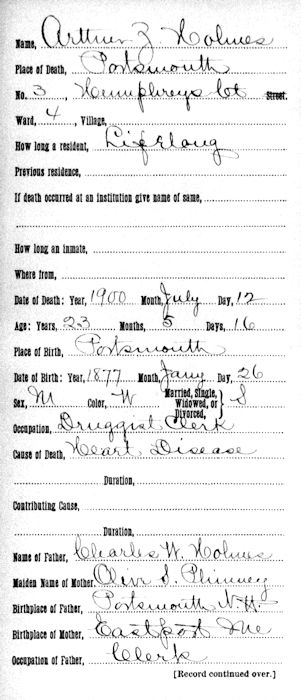 Name, Arthur Z Holmes
Place of Death, Portsmouth
No. 3, Humphreys Ct Street.
Ward, 4, Village,
How long a resident, Lifelong
Previous residence,
If death occurred at an institution give name of same,
How long an inmate,
Where from,
Date of Death: Year, 1900 Month, July Day, 12
Age: Years, 23 Months, 5 Days, 16
Place of Birth, Portsmouth
Date of Birth: Year, 1877 Month, Jany Day, 26
Sex, M Color, W Married, Single, Widowed, or Divorced, } S
Occupation, Druggist Clerk
Cause of Death, Heart Disease
Duration,
Contributing Cause,
Duration,
Name of Father, Charles W. Holmes
Maiden Name of Mother, Olive S. Phinney
Birthplace of Father, Portsmouth N.H.
Birthplace of Mother, Eastport Me
Occupation of Father, Clerk
[Record continued over.]